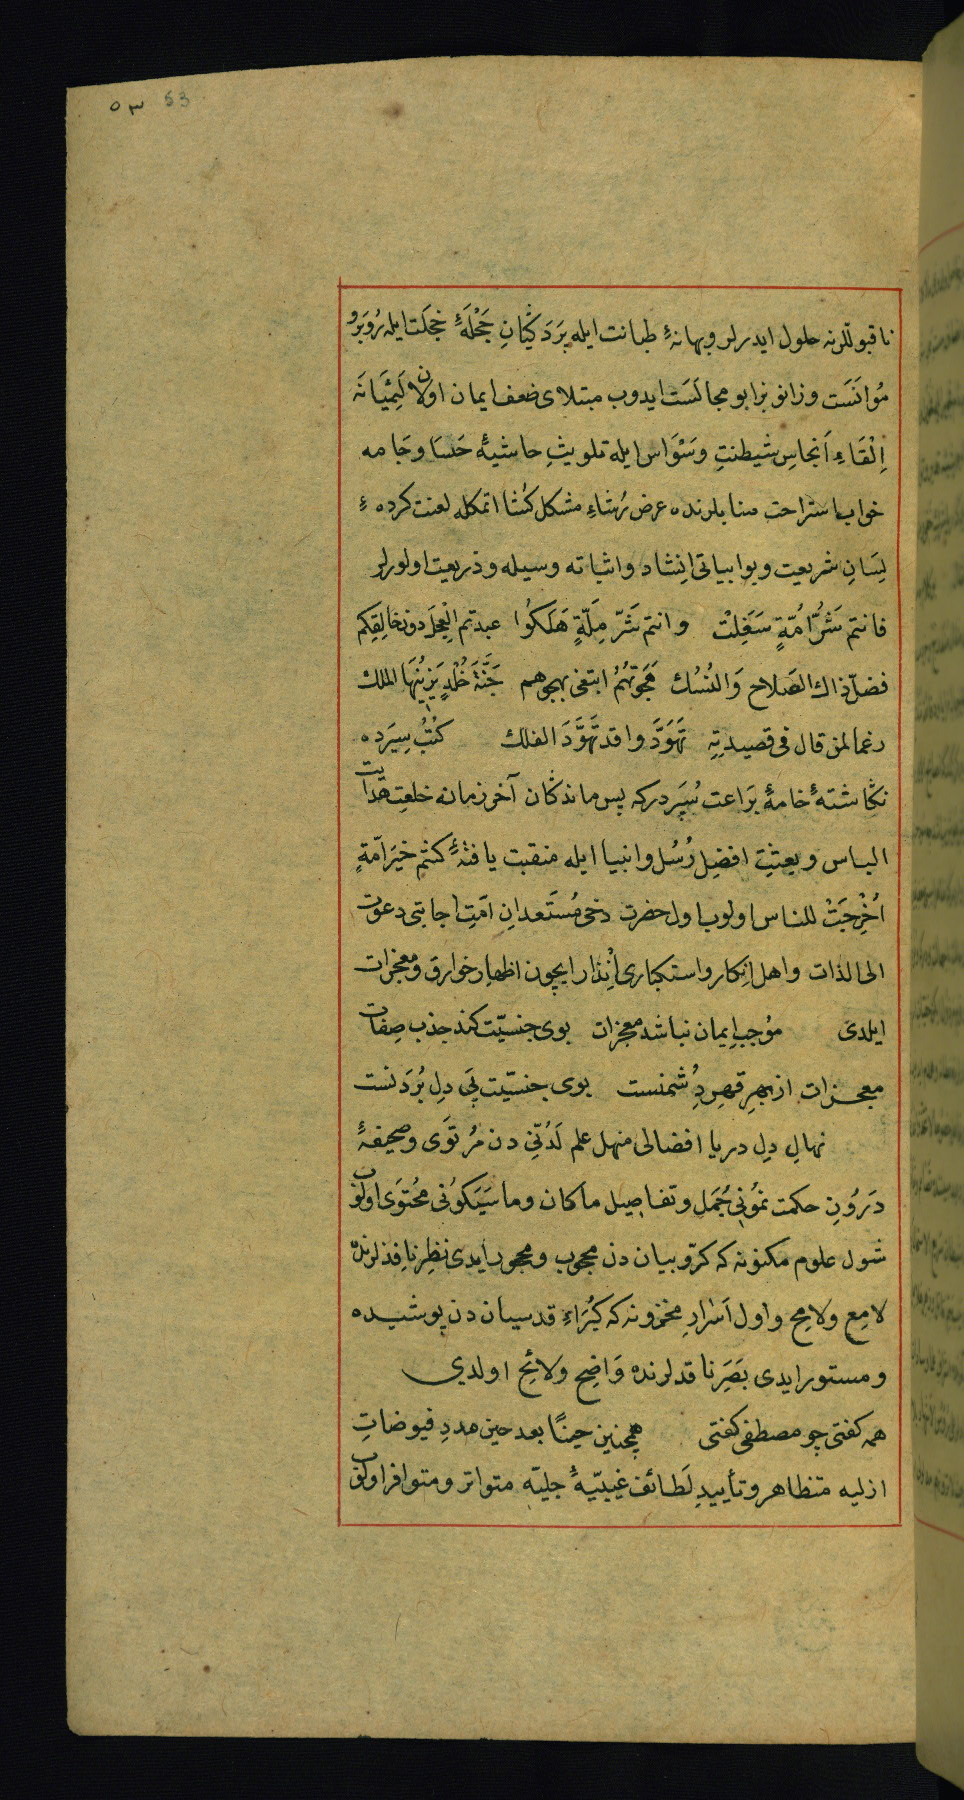 ٥٣ 53
ناقبوللرنه حلول ايدرلر و بهانهٔ طبانت ايله پردكيانِ حجلهٔ خجلت ايله رُوبَرو
مُوانَسَت و زانو بزانو مجالَسَت ايدوب مبتلاى ضعف ايمان اولان لَئِيمَانَه
اِلْقَاءِ اَنجاسِ شيطنتِ وَسْوَاس ايله تلويثِ حاشيهٔ حَسَا و جَامه
خواب استراحت لرنده عرض رُشَاءِ مشكل كُشا اتمكله لعنت كردهٔ
لِسَانِ شريعت و بو ابياتى اِنْشاد و اثباته وسيله و ذريعت اولورلر
فانتم شَرُّ اُمّةٍ سَفِلتْ وانتم شَرّ مِلّةٍ هَلَكُوا عبدتم الْعِجلَ دون خالقِكم
فضلّ ذاك الصَلاح وَالنُسُك هَجَوتُهُمْ ابتغى بهجوهم جَنَّةَ خُلْدٍ يَزِينُهَا الملك
رغما لمن قال فى قصيدتِهِ تَهَوَّدَوا قد تَهَوَّدَ الفلك كُتُبِ سِيَرده
نگاشتهٔ خامهٔ بَرَاعت سُپَردركه پس ماندگان آخر زمانه خلعتِ هدايت
الباس و بعثتِ افضلِ رُسُل و انبيا ايله منقبت يافتهٔ كنتم خيرَ امّةٍ
اُخْرِجَتْ للناس اولوب اول حضرت دخى مُستَعدانِ امّتِ اجابتى دعوت
الى الذات و اهل اِنكار و استكبارى اِنْذار ايچون اظهارِ خوارق و معجزات
ايلدى مُوجبِ ايمان نباشد معجزات بوى جنسيّت كند جذب صِفات
معجزات از بهرِ قهرِ دُشمنست بوى جنسيّت پَىِ دِل بُردَنست
نهالِ دِلِ دريا افضالى منهل علم لَدُنّى دن مُرتَوى و صحيفهٔ
دَرُونِ حكمت نمُونى مُجمَل و تفاصيل ماكان و ما سَيَكُونى مُحتوَى اولوب
شول علوم مكنونه كه كرّوبيان دن محجوب و مهجور ايدى نظرِ نافذلرنده
لامِع و لامِح و اول اَسْرارِ مخزونه كه كُبَرَاءِ قدسيان دن پوشيده
و مستور ايدى بصَرِ ناقدلرنده وَاضِح و لائِح اولدى
همه كفتى چو مصطفى كفتى همچنين حينًا بعد حين مددِ فيوضاتِ
ازليه متظاهر و تأييدِ لَطائف غيبيّهٔ جليّه متواتر و متوافر اولوب